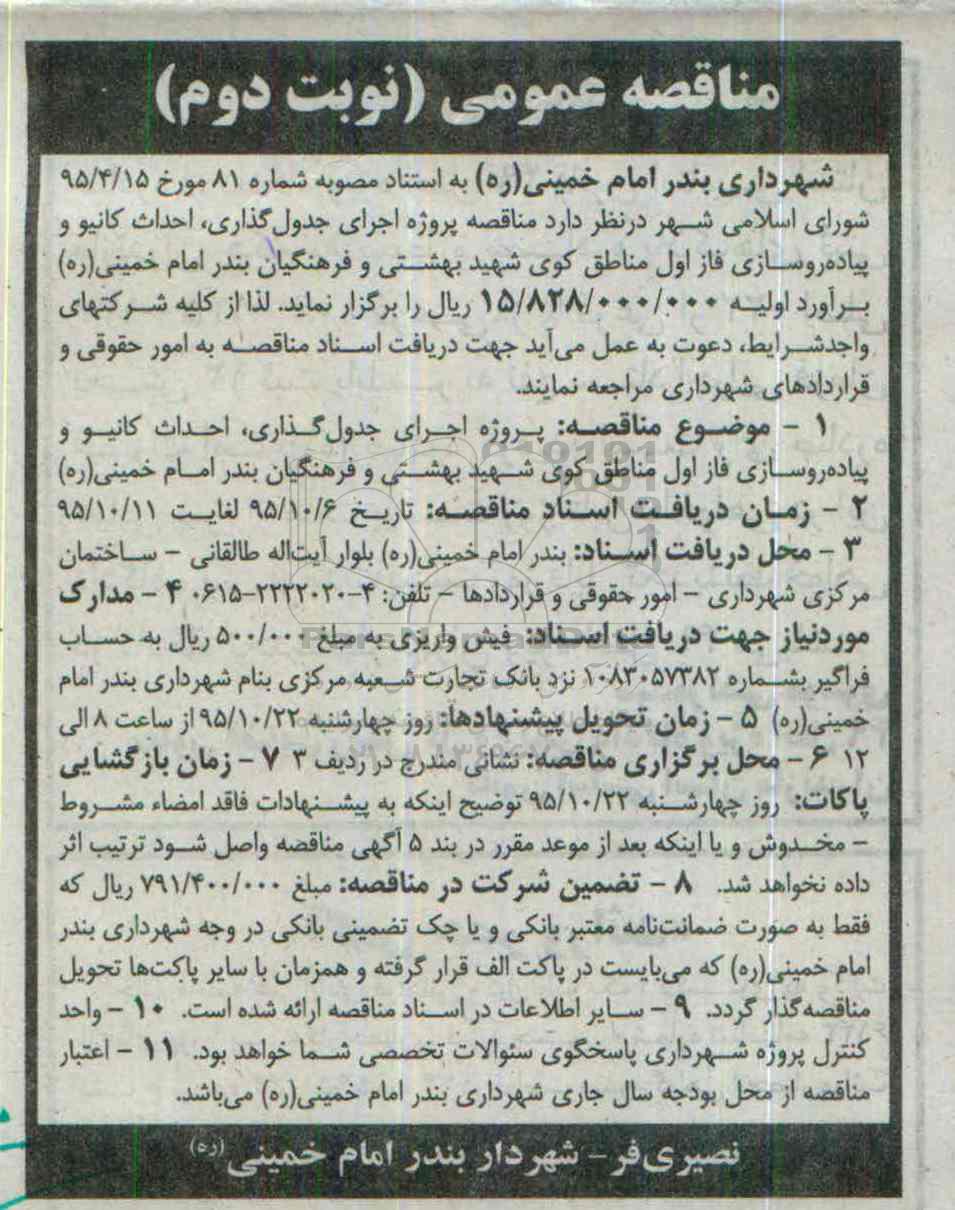 مناقصه عمومی (نوبت دوم)
شهرداری بندر امام خمینی(ره) به استناد مصوبه شماره ۸۱ مورخ ۹۵/۴/۱۵
شورای اسلامی شهر درنظر دارد مناقصه پروژه اجرای جدول‌گذاری، احداث کانیو و
پیاده‌روسازی فاز اول مناطق کوی شهید بهشتی و فرهنگیان بندر امام خمینی(ره)
برآورد اولیه ۱۵/۸۲۸/۰۰۰/۰۰۰ ریال را برگزار نماید. لذا از کلیه شرکتهای
واجدشرایط، دعوت به عمل می‌آید جهت دریافت اسناد مناقصه به امور حقوقی و
قراردادهای شهرداری مراجعه نمایند.
۱ – موضوع مناقصه: پروژه اجرای جدول‌گذاری، احداث کانیو و
پیاده‌روسازی فاز اول مناطق کوی شهید بهشتی و فرهنگیان بندر امام خمینی(ره)
۲ – زمان دریافت اسناد مناقصه: تاریخ ۹۵/۱۰/۶ لغایت ۹۵/۱۰/۱۱
۳ – محل دریافت اسناد: بندر امام خمینی(ره) بلوار آیت‌اله طالقانی – ساختمان
مرکزی شهرداری – امور حقوقی و قراردادها – تلفن: ۴-۲۲۲۲۰۲۰-۰۶۱۵ ۴ – مدارک
موردنیاز جهت دریافت اسناد: فیش واریزی به مبلغ ۵۰۰/۰۰۰ ریال به حساب
فراگیر بشماره ۱۰۸۳۰۵۷۳۸۲ نزد بانک تجارت شعبه مرکزی بنام شهرداری بندر امام
خمینی(ره) ۵ – زمان تحویل پیشنهادها: روز چهارشنبه ۹۵/۱۰/۲۲ از ساعت ۸ الی
۱۲ ۶ – محل برگزاری مناقصه: نشانی مندرج در ردیف ۳ ۷ – زمان بازگشایی
پاکات: روز چهارشنبه ۹۵/۱۰/۲۲ توضیح اینکه به پیشنهادات فاقد امضاء مشروط
– مخدوش و یا اینکه بعد از موعد مقرر در بند ۵ آگهی مناقصه واصل شود ترتیب اثر
داده نخواهد شد. ۸ – تضمین شرکت در مناقصه: مبلغ ۷۹۱/۴۰۰/۰۰۰ ریال که
فقط به صورت ضمانت‌نامه معتبر بانکی و یا چک تضمینی بانکی در وجه شهرداری بندر
امام خمینی(ره) که می‌بایست در پاکت الف قرار گرفته و همزمان با سایر پاکت‌ها تحویل
مناقصه‌گذار گردد. ۹ – سایر اطلاعات در اسناد مناقصه ارائه شده است. ۱۰ – واحد
کنترل پروژه شهرداری پاسخگوی سئوالات تخصصی شما خواهد بود. ۱۱ – اعتبار
مناقصه از محل بودجه سال جاری شهرداری بندر امام خمینی(ره) می‌باشد.
نصیری‌فر – شهردار بندر امام خمینی(ره)